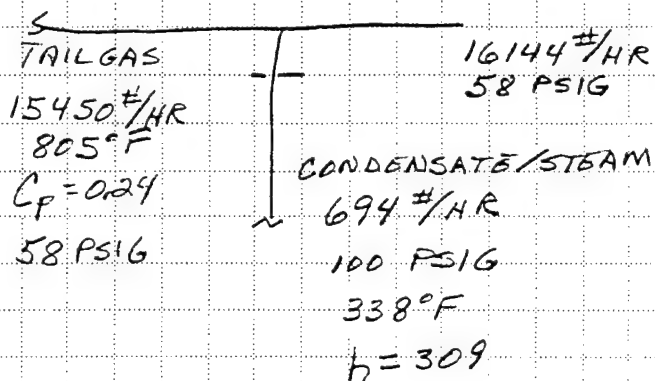 TAILGAS
15450 #/HR
805°F
Cp = 0.24
58 PSIG
16144 #/HR
58 PSIG
CONDENSATE/STEAM
694 #/HR
100 PSIG
338°F
h = 309